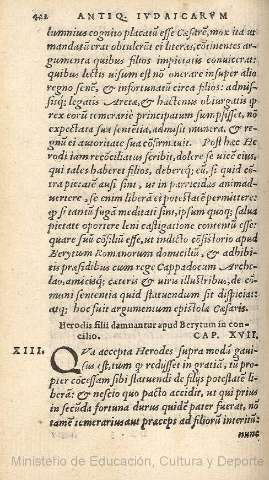 422 ANTIQ. IVDAICARVM
lumnius cognito placatũ esse Cæsarẽ, mox ita ut
mandatũ erat obtulerat ei literas, cõtinentes ar-
gumenta quibus filios impietatis conuicerat:
quibus lectis uisum est nõ onerare insuper alio
regno senẽ, & infortunatũ circa filios: admis-
sisq; legatis Aretæ, & hactenus obiurgatis q
rex eorũ temerariè principatum sumpsisset, nõ
expectata sua sentẽtia, admisit munera, & re-
gnũ ei autoritate sua cõfirmauit. Post hæc He-
rodi iam recõciliatus scribit, dolere se uicẽ eius,
qui tales haberet filios, debereq; eũ, si quid cõ-
tra pietatẽ ausi sint, ut in parricidas animad-
uertere. se enim liberã ei potestatẽ permittere:
q si tantũ fugã meditati sint, ipsum quoq; salua
pietate oportere leni castigatione contentũ esse:
quare suũ cõsiliũ esse, ut indicto cõsistorio apud
Berytum Romanorum domiciliũ, & adhibi-
tis præsidibus cum rege Cappadocum Arche-
lao, amicisq; cæteris & uiris illustribus, de cõ-
muni sententia quid statuendum sit dispiciat:
atq; hoc fuit argumentum epistolæ Cæsaris.
Herodis filii damnantur apud Berytum in con-
cilio. CAP. XVII.
XIII. QVa accepta Herodes supra modũ gaui-
sus est, tum q redijsset in gratiã, tũ pro-
pter cõcessam sibi statuendi de filijs potestatẽ li-
berã: & nescio quo pacto accidit, ut qui prius
in secũda fortuna durus quidẽ pater fuerat, nõ
tamẽ temerarius aut præceps ad filiorũ interitũ:
nunc
Ministerio de Educación, Cultura y Deporte